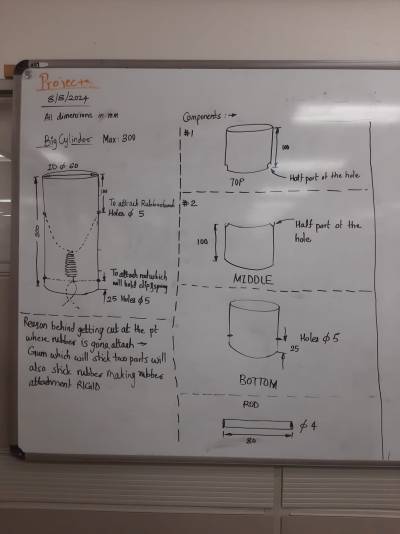 Project
8/8/2024
All dimensions in mm
Big Cylinder Max: 300
ID ϕ 60
100
300
To attach Rubberband
Holes ϕ 5
To attach rod which
will hold
25 Holes ϕ 5
Reason behind getting cut at the pt
where rubber is going attach →
Gum which will stick two parts will
also stick rubber making rubber
attachment RIGID
Components: →
#1
100
Half part of the hole
TOP
#2
Half part of the
hole
100
MIDDLE
Holes ϕ 5
25
BOTTOM
ROD
ϕ 4
80